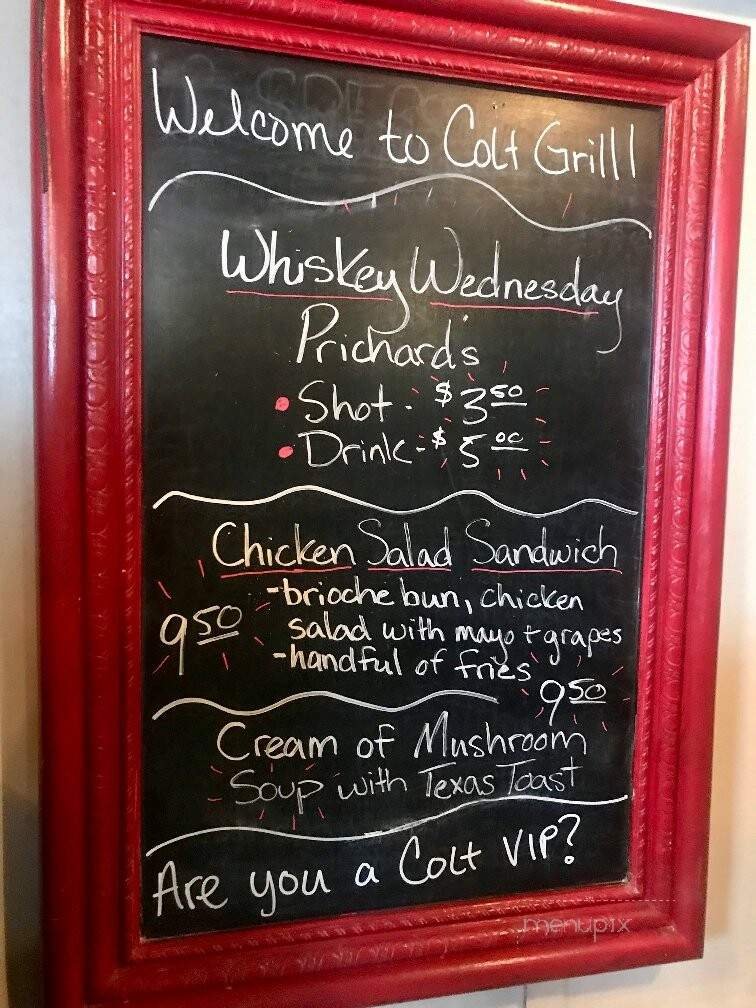 Welcome to Colt Grill!
Whiskey Wednesday
Prichard's
• Shot - $3.50
• Drink - $5.00
Chicken Salad Sandwich
- brioche bun, chicken
9.50 salad with mayo + grapes
- handful of fries
9.50
Cream of Mushroom
Soup with Texas Toast
Are you a Colt VIP?
menupix